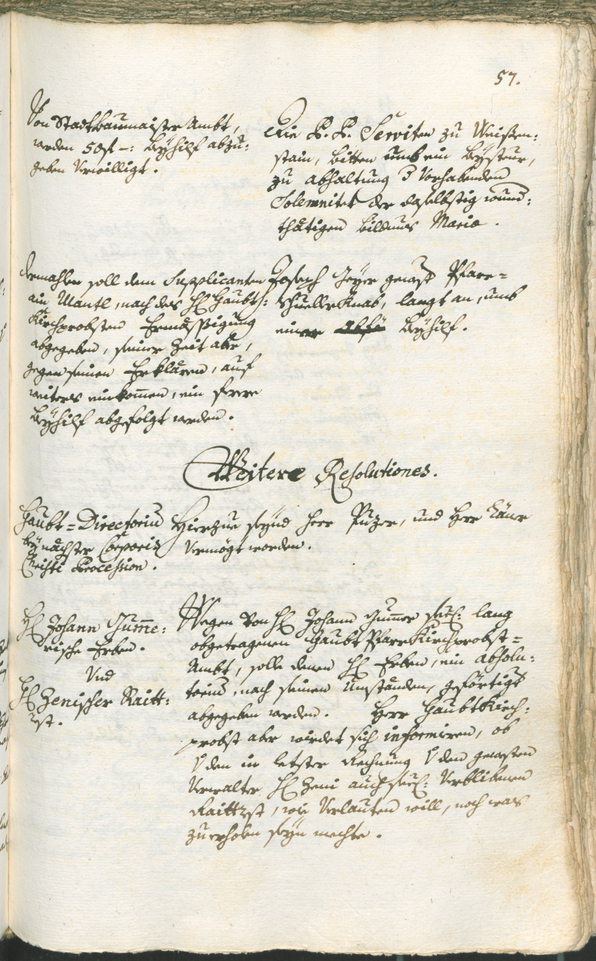 57.
Von Stadtbaumaister Ambt,
werden 50 f –: Beÿhilf abzu:
geben verwilligt.
Die P. P. Serviten zu Weissen:
stain, bitten umb ein Beÿsteur,
zu abhaltung 3 vorhabenden
Solemnitet der daselbstig wund:
thätigen bildnus Mariæ.
dermahlen soll dem Supplicanten
ein Mantl, nach des H: Haubt:
Kirchprobsten Ermässigung
abgegeben, seiner Zeit aber,
gegen seinen Erklären, auf
weiteres einkommen, ein
Beÿhilf abgefolgt werden.
Joseph gewest Pfarr=
schuelle Knab, langt an, umb
einer Beÿhilf.
Weitere Resolutiones.
Haubt=Directorium
beÿ nächster Corporis
Christi Procession.
Hierzue seÿnd Herr und Herr
vermögt worden.
H: Johann Gumme:
rische Erben.
Und
H: Zenischer Raitt:
rest.
Wegen von H: Johann Gumer seel: lang
obgetragenen Haubt Pfarr Kirchprobst=
Ambt, solle denen H: Erben, ein absolu:
torium, nach seinen Umständen, gefertigt
abgegeben werden. Herr Haubtkirch:
probst aber wirdet sich informiren, ob
von den in letster Rechnung von den gewesten
Verwalter H: Zeni auch seel: verblibenen
Raittrest, wie verlauten will, noch was
zu erholen seÿn mechte.